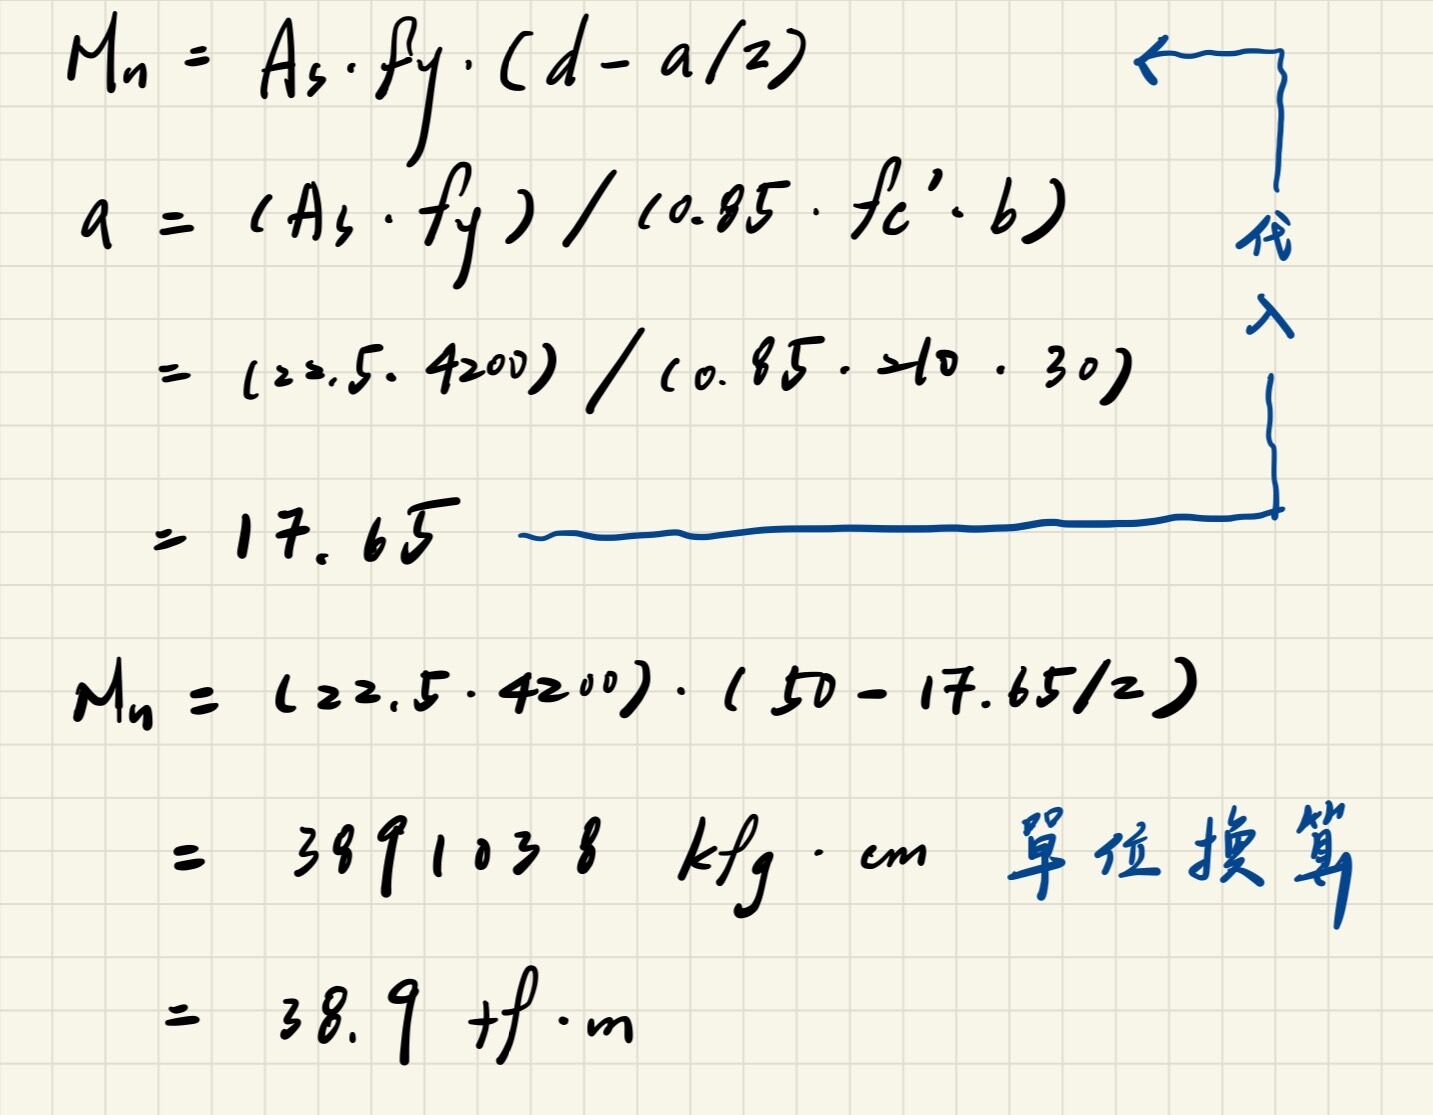 Mn = As・fy・(d - a/2)
a = (As・fy) / (0.85・fc'・b)
代
入
= (22.5・4200) / (0.85・210・30)
= 17.65
Mn = (22.5・4200)・(50 - 17.65/2)
= 3891038 kfg・cm 單位換算
= 38.9 tf・m